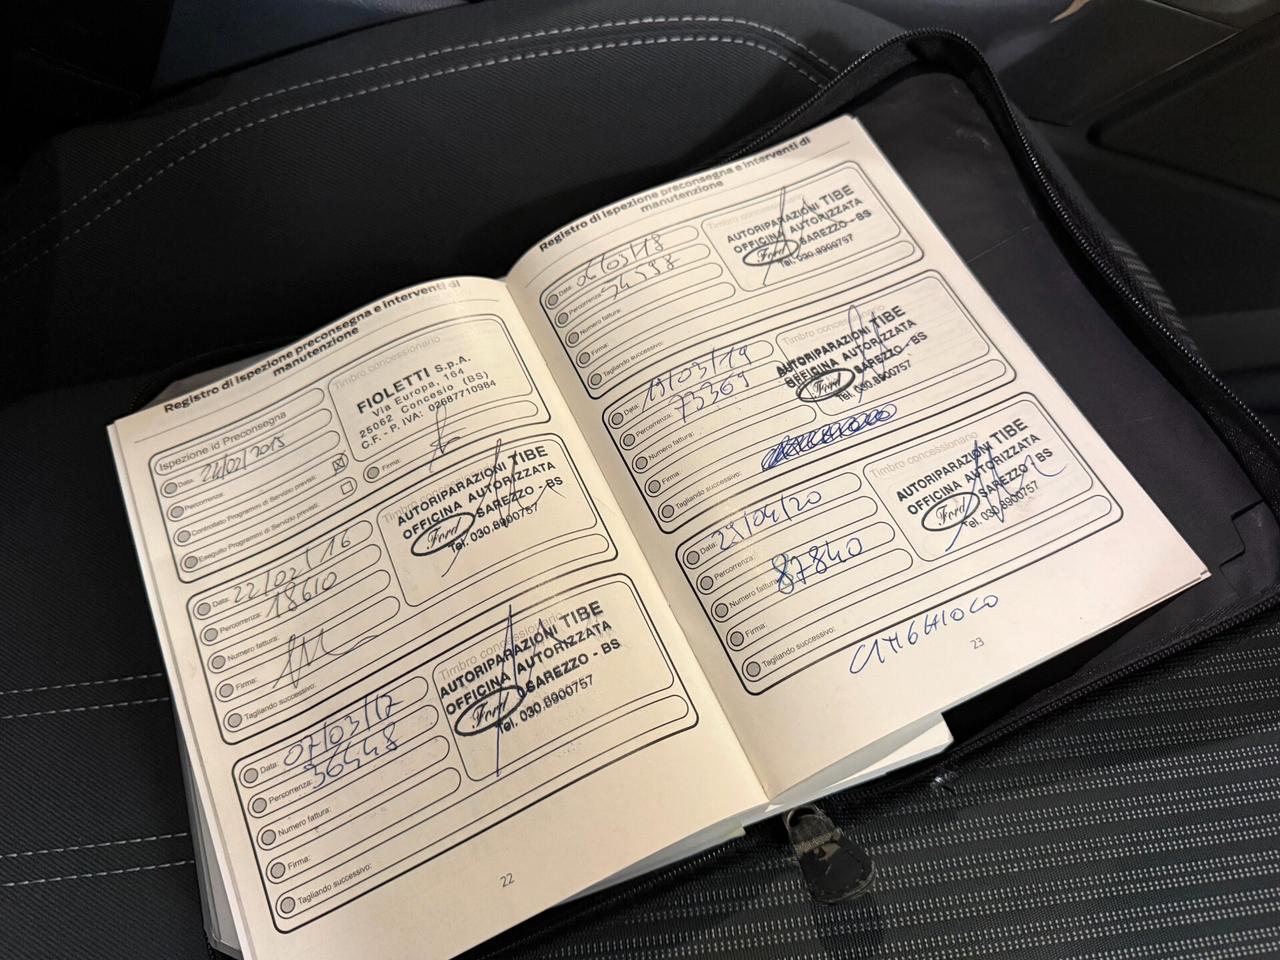 Registro di ispezione preconsegna e interventi di
manutenzione
Ispezione id Preconsegna
Data:
Percorrenza:
Controllato Programmi di Servizio previsti:
Eseguito Programmi di Servizio previsti:
Timbro concessionario
FIOLETTI S.p.A.
Via Europa, 164
25062 Concesio (BS)
C.F. - P. IVA: 02687710984
Firma:
Data: 22/02/16
Percorrenza: 18610
Numero fattura:
Firma:
Tagliando successivo:
Timbro concessionario
AUTORIPARAZIONI TIBE
OFFICINA AUTORIZZATA
Ford SAREZZO - BS
Tel. 030.8900757
Data: 07/03/17
Percorrenza: 36448
Numero fattura:
Firma:
Tagliando successivo:
Timbro concessionario
AUTORIPARAZIONI TIBE
OFFICINA AUTORIZZATA
Ford SAREZZO - BS
Tel. 030.8900757
22
Registro di ispezione preconsegna e interventi di
manutenzione
Data: 06/03/18
Percorrenza: 54598
Numero fattura:
Firma:
Tagliando successivo:
Timbro concessionario
AUTORIPARAZIONI TIBE
OFFICINA AUTORIZZATA
Ford SAREZZO - BS
Tel. 030.8900757
Data: 19/03/19
Percorrenza: 73369
Numero fattura:
Firma:
Tagliando successivo:
Timbro concessionario
AUTORIPARAZIONI TIBE
OFFICINA AUTORIZZATA
Ford SAREZZO - BS
Tel. 030.8900757
Data: 29/04/20
Percorrenza:
Numero fattura: 87840
Firma:
Tagliando successivo:
Timbro concessionario
AUTORIPARAZIONI TIBE
OFFICINA AUTORIZZATA
Ford SAREZZO - BS
Tel. 030.8900757
23